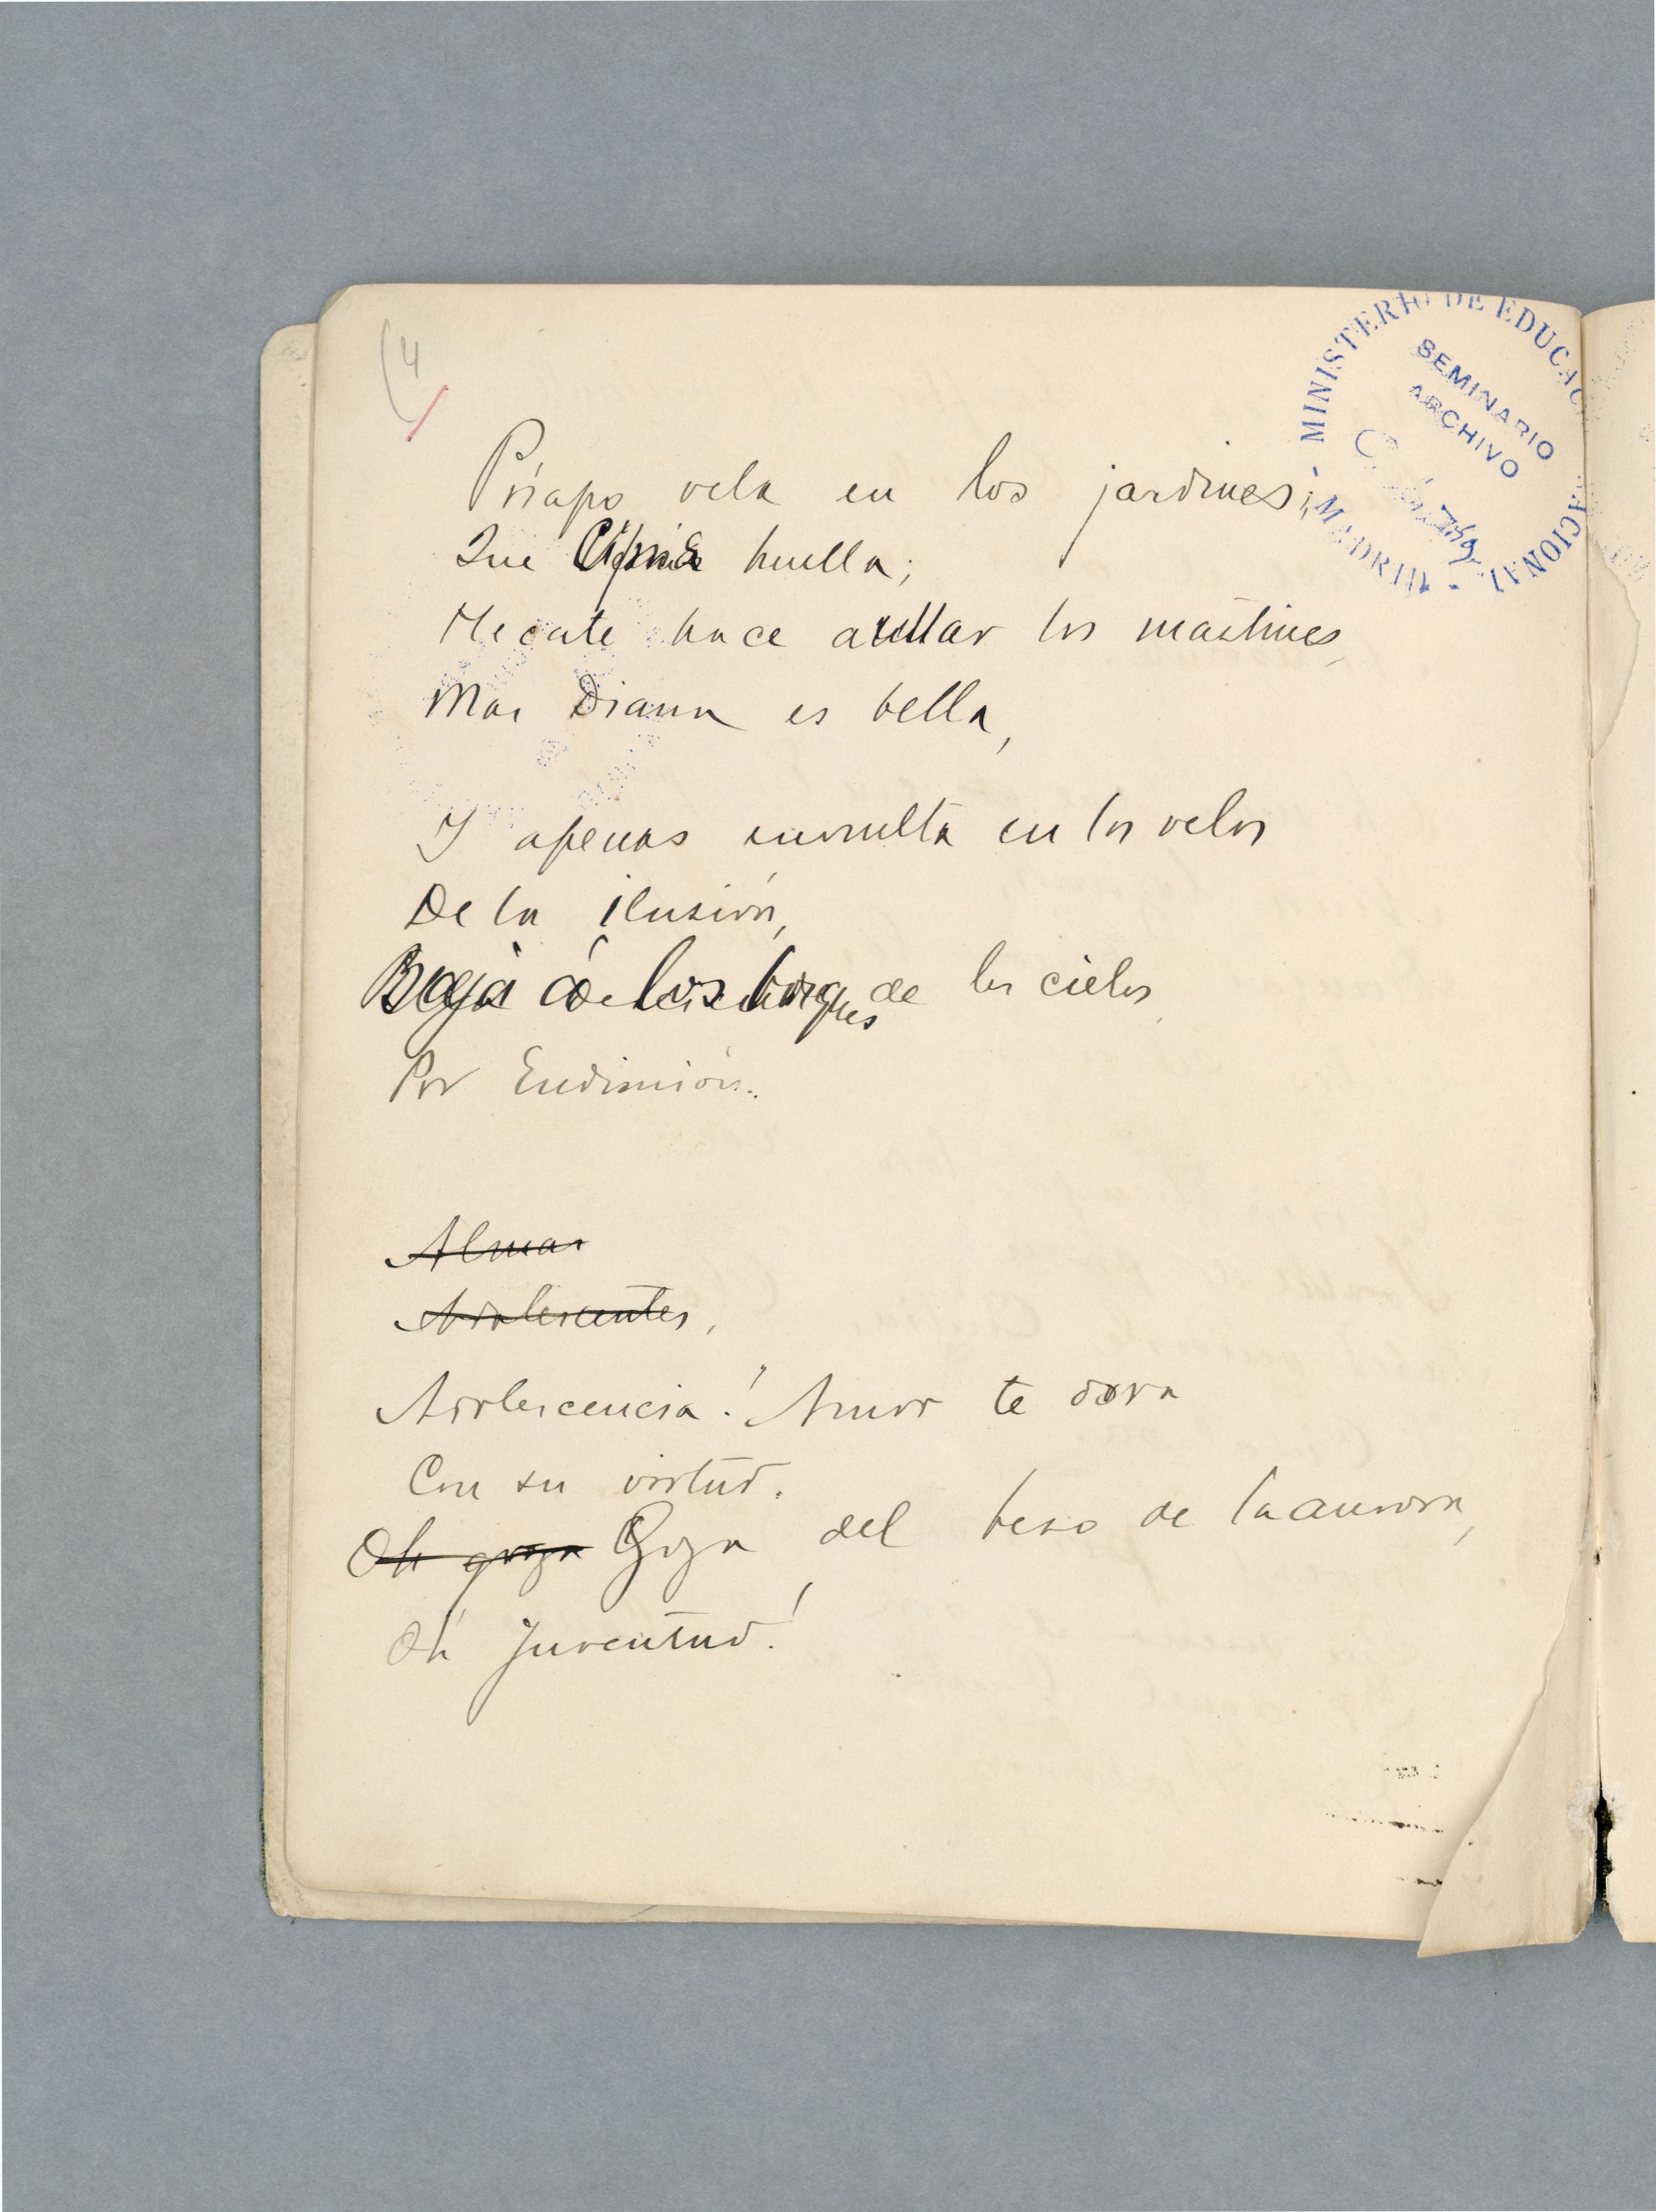 (4
MINISTERIO DE EDUCAC NACIONAL - MADRID -
SEMINARIO
ARCHIVO
Príapo vela en los jardines;
Que huella;
Hecate hace aullar los mastines,
Mas Diana es bella,
Y apenas envuelta en los velos
De la ilusión,
Baja á los bosques de los cielos
Por Endimión.
Almas
Adolescentes,
Adolescencia! Amor te dora
Con su virtud.
Oh goza Goza del beso de la aurora,
Oh juventud!